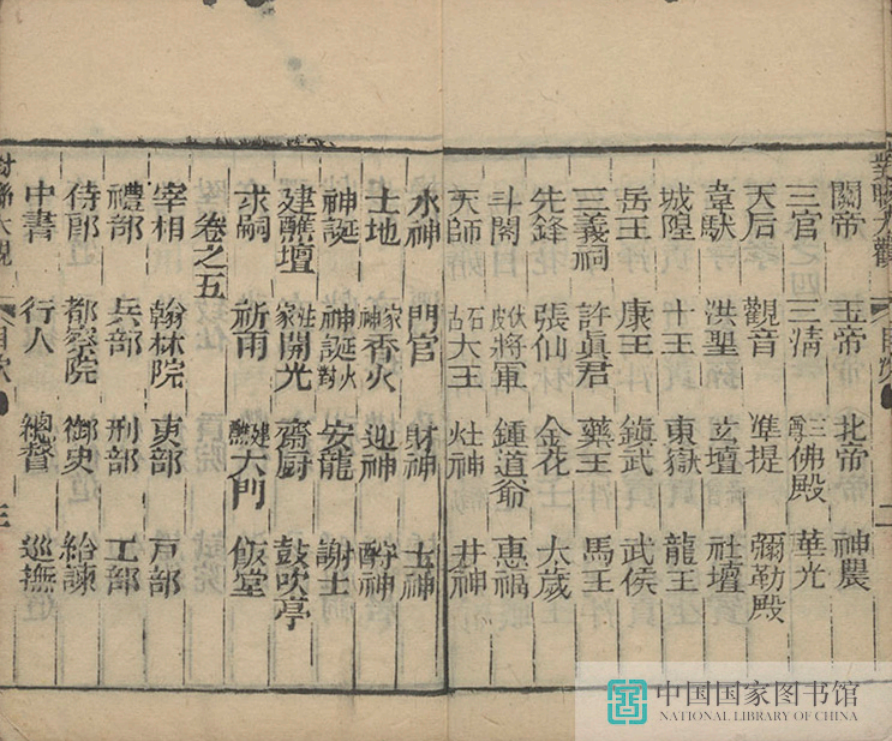 對聯大觀 目次 二
關帝 玉帝 北帝 神農
三官 三清 三尊佛殿 華光
天后 觀音 準提 彌勒殿
韋馱 洪聖 玄壇 社壇
城隍 十王 東嶽 龍王
岳王 康王 鎮武 武侯
三義祠 許眞君 藥王 馬王
先鋒 張仙 金花 太歲
斗閣 伏皮將軍 鍾道爺 惠禍
天師 石古大王 灶神 井神
水神 門官 財神 土神
土地 家神香火 迎神 酧神
神誕 神誕火對 安龍 謝土
建醮壇 粧家開光 齋厨 鼓吹亭
求嗣 祈雨 建醮大門 飯堂
卷之五
宰相 翰林院 吏部 戸部
禮部 兵部 刑部 工部
侍郎 都察院 御史 給諫
中書 行人 總督 巡撫
對聯大觀 目次 三
中国国家图书馆
NATIONAL LIBRARY OF CHINA